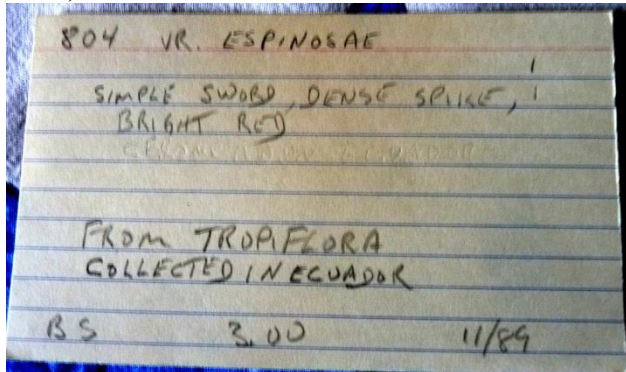 804 VR. ESPINOSAE
SIMPLE SWORD, DENSE SPIKE,
BRIGHT RED
ECUADOR
FROM TROPIFLORA
COLLECTED IN ECUADOR
BS 3.00 11/89